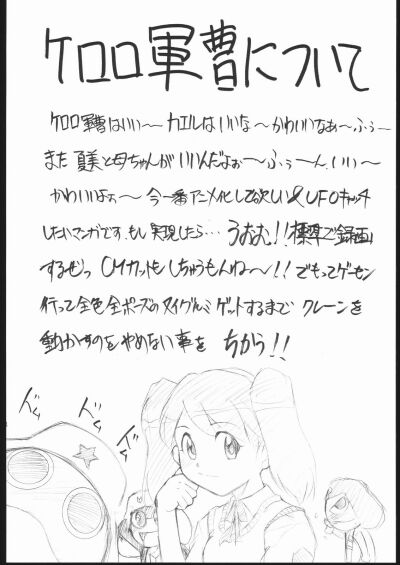 ケロロ軍曹について
ケロロ軍曹はいい〜 カエルはいいな〜かわいいなぁ〜ふぅー
また夏美と母ちゃんがいいんだよぉ〜ふぅーん、いい〜
かわいいよぉ〜 今一番アニメ化して欲しい&UFOキャッチ
したいマンガです。もし実現したら…うおお!!標準で録画
するぜっ CMカットもしちゃうもんね〜!!でもってゲーセン
行って全色全ポーズのヌイグルミゲットするまで クレーンを
動かすのをやめない事を ちかう!!
ドム
ドム
ドム